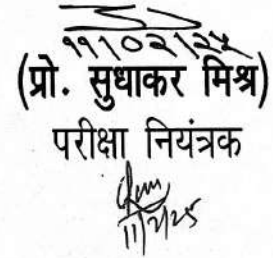 ११।०२।२५
(प्रो. सुधाकर मिश्र)
परीक्षा नियंत्रक
11/2/25